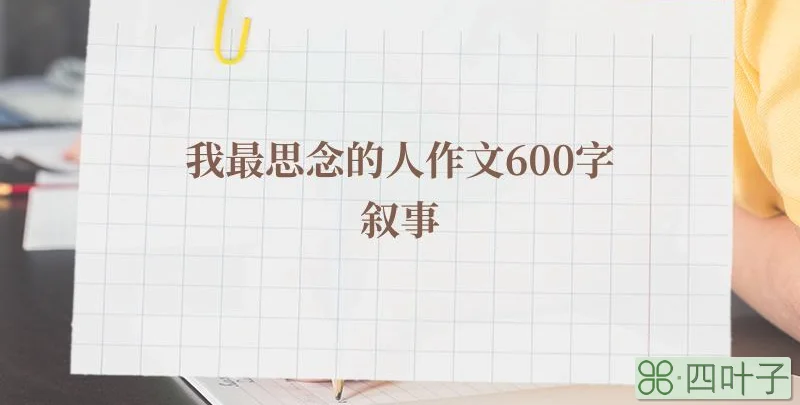 我最思念的人作文600字
叙事
四叶子